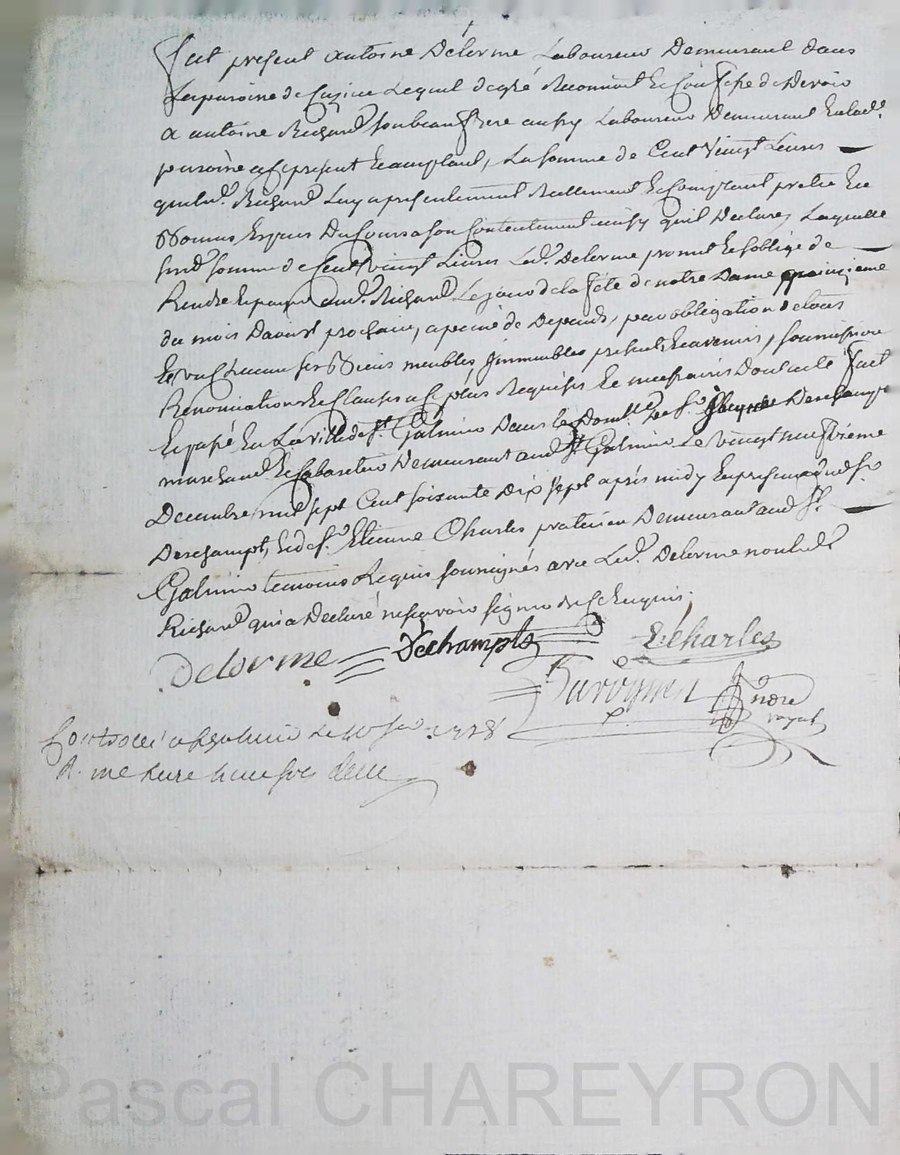 fut present antoine Delorme Laboureur Demeurant dans
La paroisse de Cuzieu Lequel de gré Reconnoit et Confesse de devoir
a antoine Richard son beau frere aussy Laboureur Demeurant en lad.
paroisse a ce present Et acceptant, La somme de Cent Vingt Livres
que led. Richard Luy a presentement Reellement Et Comptant pretée En
Bonnes Especes Du Cours a son Contentement ainsy quil Declare, Laquelle
susd. somme de Cent vingt Livres Led. Delorme promet Et soblige de
Rendre Et payer aud. Richard Le jour de la fete de notre Dame quinzieme
du mois Daoust prochain, a peine de Depends, par obligation de tous
Et un Chacun ses Biens meubles, jmmeubles presents Et avenirs, soumissions
Renonciations Et Clauses a ce plus Requises Et necessaires Dont acte fait
Et passé En La ville de St. Galmier Dans le Domlle. de Sr. Deschampt
marchand Et Cabaretier Demeurant aud. St. Galmier Le vingt neufvieme
Decembre mil sept Cent soixante Dix sept après midy En presence dud. Sr.
Deschampt, Et de Sr. Etienne Charles praticien Demeurant aud. St.
Galmier temoins Requis soussignés avec Led. Delorme non led.
Richard qui a Declaré ne sçavoir signer de ce Enquis.
Delorme Dechampts E Charles
André
Controllé a St Galmier Le 1778
R.
Pascal CHAREYRON